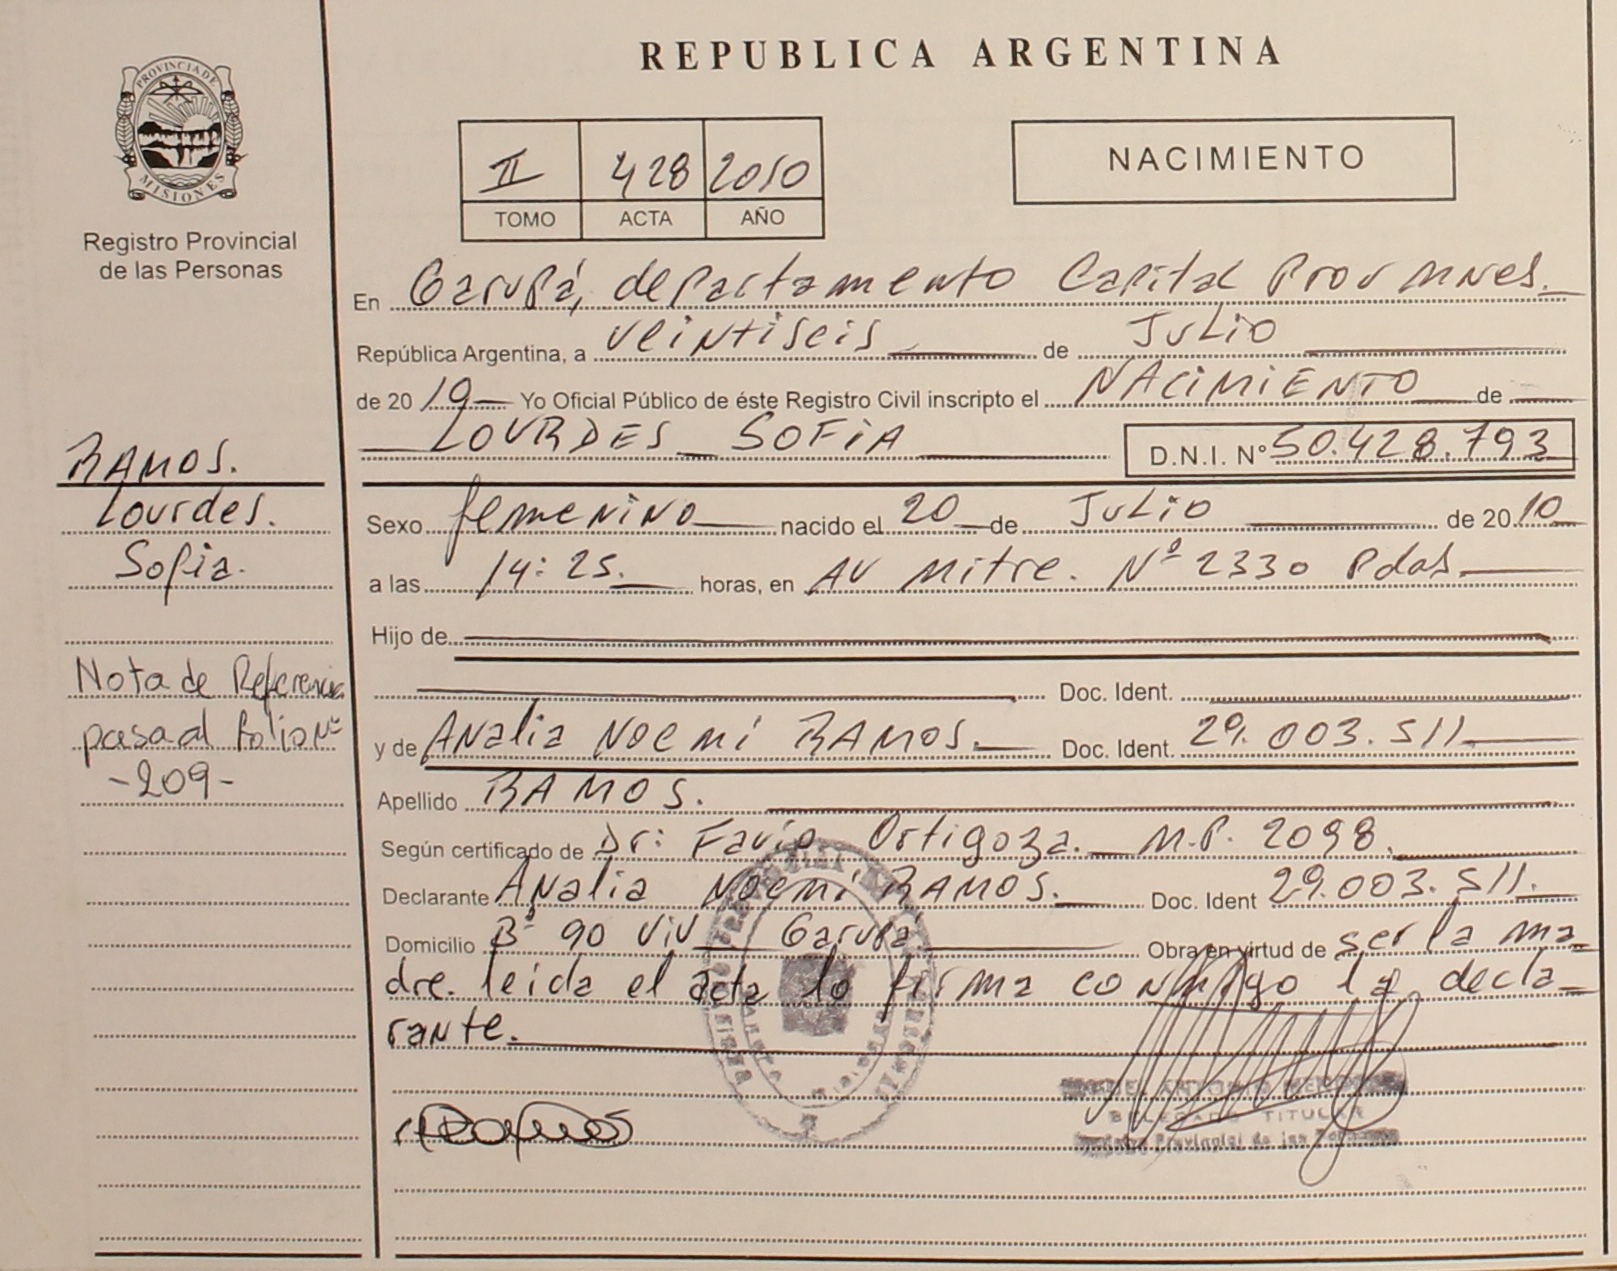 PROVINCIA DE
MISIONES
Registro Provincial
de las Personas
RAMOS.
Lourdes.
Sofia.
Nota de Referencia
pasa al folio Nº
-209-
REPUBLICA ARGENTINA
II 428 2010
TOMO ACTA AÑO
NACIMIENTO
En Garupá, departamento Capital Prov Mnes.
República Argentina, a veintiseis de Julio
de 2010 Yo Oficial Público de éste Registro Civil inscripto el NACIMIENTO de
LOURDES SOFIA D.N.I. Nº 50.428.793
Sexo femenino nacido el 20 de Julio de 2010
a las 14:25. horas, en AV Mitre. Nº 2330 Pdas
Hijo de
Doc. Ident.
y de Analia Noemi RAMOS. Doc. Ident. 29.003.511
Apellido RAMOS.
Según certificado de Dr: Favio Ortigoza. M.P. 2098.
Declarante Analia Noemi RAMOS. Doc. Ident 29.003.511.
Domicilio Bº 90 viv Garupa Obra en virtud de ser la ma
dre. leida el acta lo firma conmigo la decla
rante.
ANTONIO
TITULAR
Provincial de las Personas